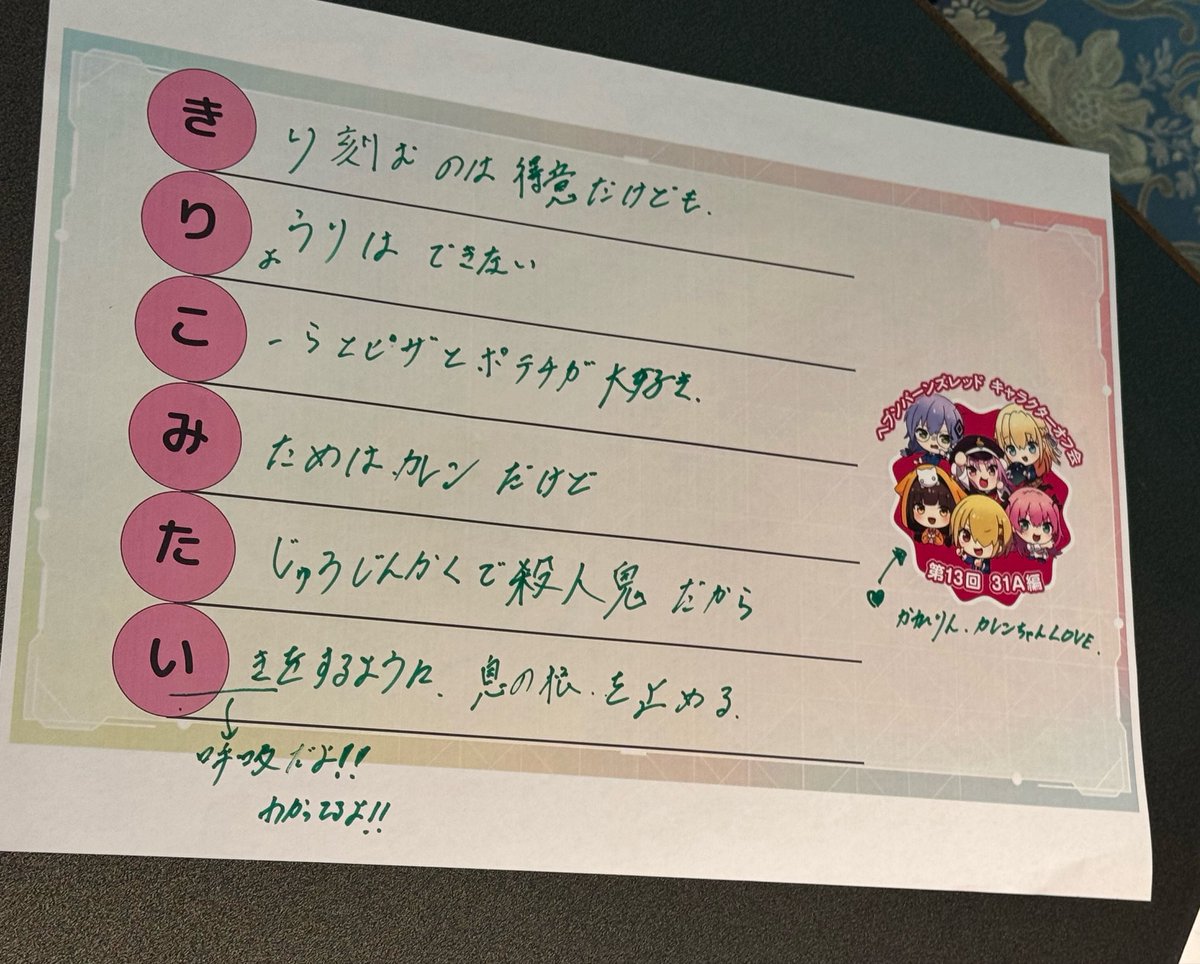 きり刻むのは得意だけども、
りょうりはできない
こーらとピザとポテチが大好き、
みためはカレンだけど
たじゅうじんかくで殺人鬼だから
いきをするように、息の根を止める。
呼吸だよ!!
わかってるよ!!
ヘブンバーンズレッド キャラクターオフ会
第13回 31A編
かれりん、カレンちゃんLOVE.